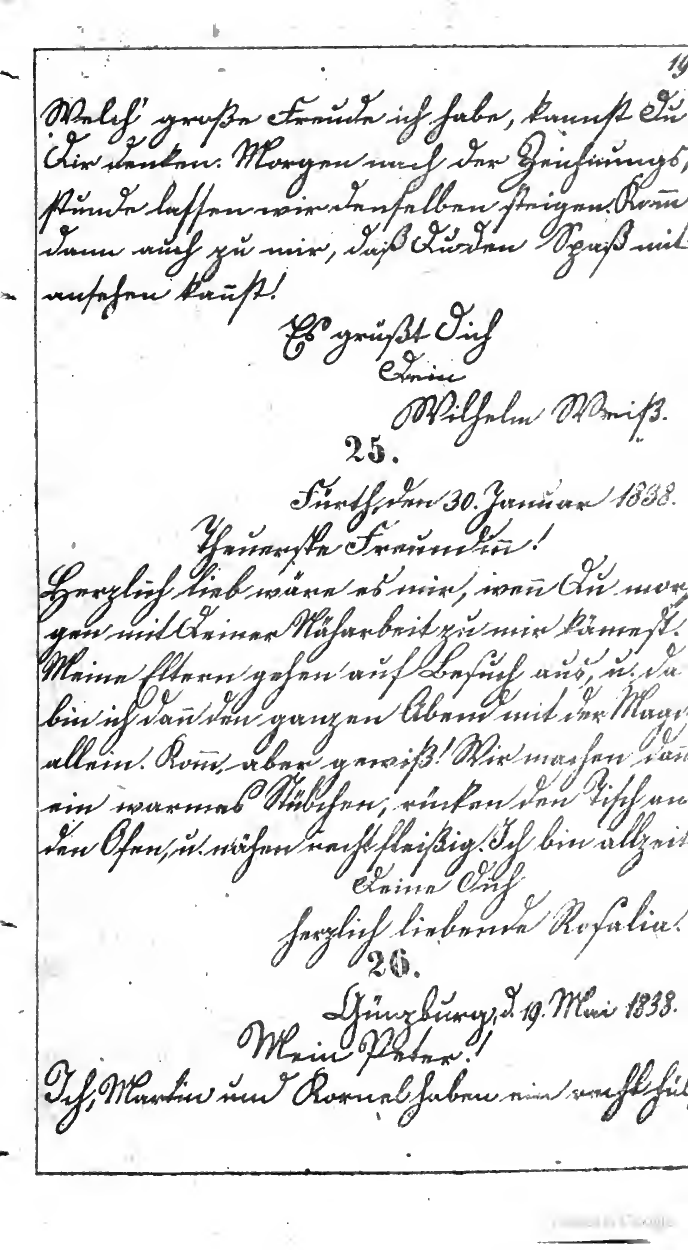 19
Welch' große Freude ich habe, kannst Du
Dir denken. Morgen nach der Zeichnungs,
stunde lassen wir denselben steigen. Kom̄
dann auch zu mir, daß Du den Spaß mit
ansehen kan̄st!
Es grüßt Dich
Dein
Wilhelm Weiß.
25.
Fürth, den 30. Januar 1838.
Theuerste Freundin̄!
Herzlich lieb wäre es mir, wen̄ Du mor,
gen mit Deiner Näharbeit zu mir kämest.
Meine Eltern gehen auf Besuch aus, u. da
bin ich dan̄ den ganzen Abend mit der Magd
allein. Kom̄, aber gewiß! Wir machen dan̄
ein warmes Stübchen, rücken den Tisch an
den Ofen, u. nähen recht fleißig. Ich bin allzeit
Deine Dich
herzlich liebende Rosalia.
26.
Günzburg, d. 19. Mai 1838.
Mein Peter!
Ich, Martin und Kornel haben ein recht